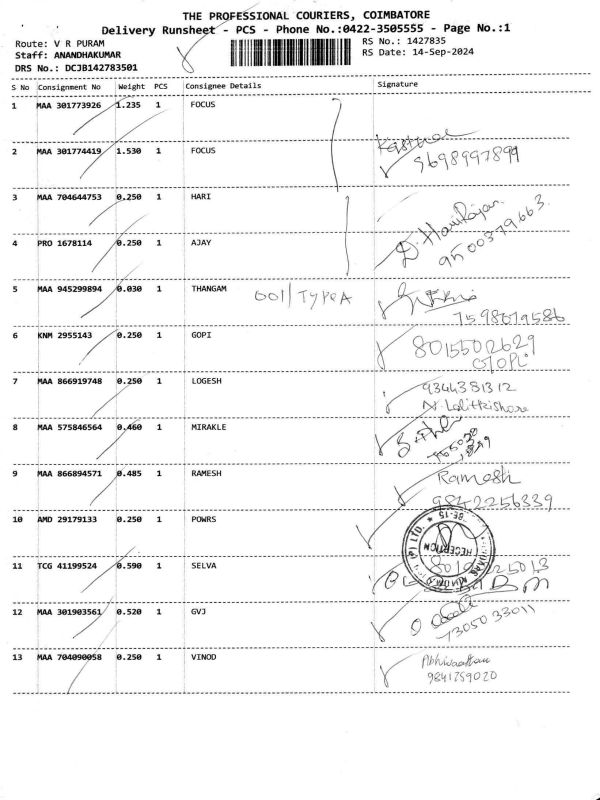 THE PROFESSIONAL COURIERS, COIMBATORE
Delivery Runsheet - PCS - Phone No.:0422-3505555 - Page No.:1
Route: V R PURAM
RS No.: 1427835
Staff: ANANDHAKUMAR
RS Date: 14-Sep-2024
DRS No.: DCJB142783501
S No Consignment No Weight PCS Consignee Details Signature
1 MAA 301773926 1.235 1 FOCUS
2 MAA 301774419 1.530 1 FOCUS
9698997899
3 MAA 704644753 0.250 1 HARI
D. Harirajan
9500379663.
4 PRO 1678114 0.250 1 AJAY
5 MAA 945299894 0.030 1 THANGAM 001/TYPEA
7598079586
6 KNM 2955143 0.250 1 GOPI
8015502629
GOPI
7 MAA 866919748 0.250 1 LOGESH
9344381312
N. Lalitkishore
8 MAA 575846564 0.460 1 MIRAKLE
9 MAA 866894571 0.485 1 RAMESH
Ramesh
9842256339
10 AMD 29179133 0.250 1 POWRS
RECEPTION
11 TCG 41199524 0.590 1 SELVA
12 MAA 301903561 0.520 1 GVJ
7305033011
13 MAA 704090058 0.250 1 VINOD
9841759020